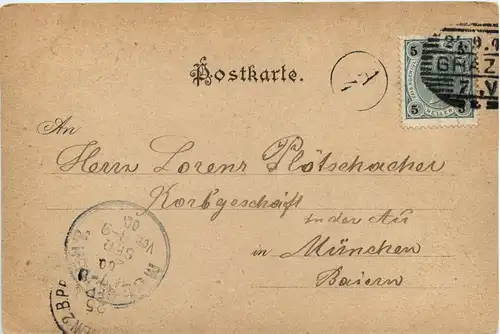 Postkarte.
5
5
5
5
HELLER
GRAZ
An
Herrn Lorenz Plötschacher
Korbgeschäft
in der Au
in München
Baiern
SEP
00
25
2.B.P.